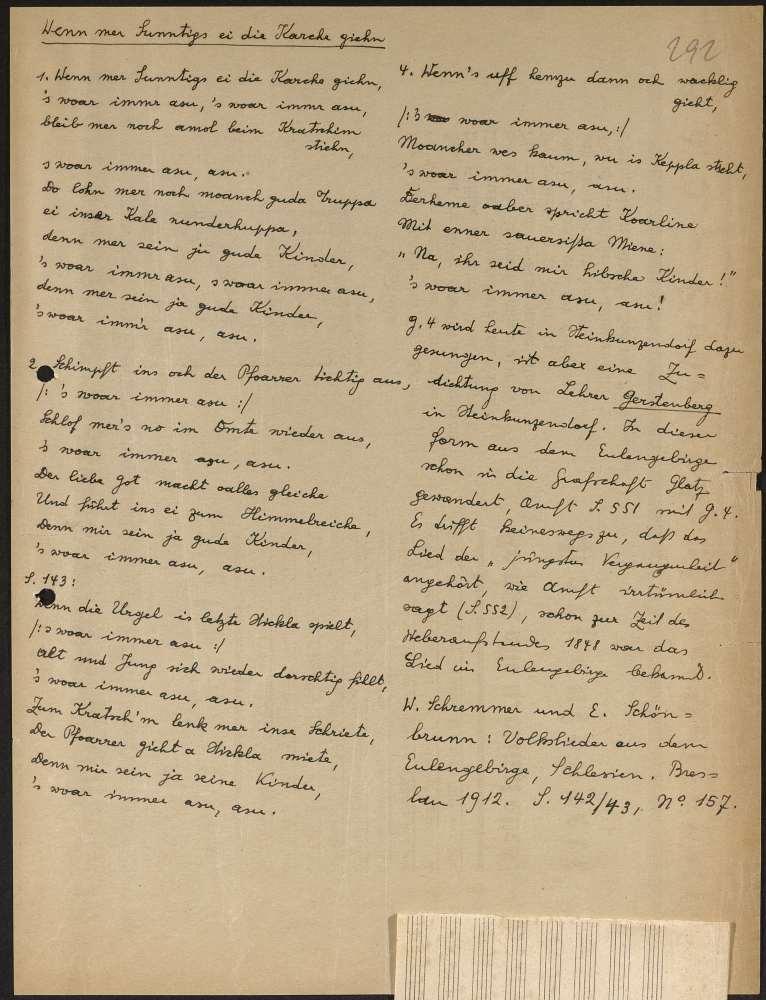 Wenn mer Sunntigs ei die Karche giehn
292
1. Wenn mer Sunntigs ei die Karche giehn,
's woar immr asu, 's woar immr asu,
bleib mer noch amol beim Kratschim
stiehn,
s woar immer asu, asu.
Do lohn mer noch moanch guda Truppa
ei inser Kale nunderhuppa,
denn mer sein ju gude Kinder,
's woar immr asu, s woar immer asu,
denn mer sein ja gude Kinder,
's woar imm'r asu, asu.
2. Schimpft ins och der Pfoarrer tichtig aus,
/: 's woar immer asu :/
Schlof mer's no im Omte wieder aus,
's woar immer asu, asu.
Der liebe Got macht oalles gleiche
Und führt ins ei zum Himmelreiche,
Denn mir sein ja gude Kinder,
's woar immer asu, asu.
S. 143:
Wenn die Urgel is letzte Stickla spielt,
/: s woar immer asu :/
Alt und Jung sich wieder dorschtig fillt,
's woar immer asu, asu.
Zum Kratsch'm lenk mer inse Schriete,
Der Pfoarrer gieht a Stickla miete,
Denn mir sein ja seine Kinder,
's woar immer asu, asu.
4. Wenn's uff hemzu dann och wacklig
gieht,
/: 's woar immer asu, :/
Moancher wes kaum, wu is Keppla stieht,
's woar immer asu, asu.
Derheme oaber spricht Koarline
Mit enner sauersißa Miene:
„Na, ihr seid mir hibsche Kinder!"
's woar immer asu, asu!
G. 4 wird heute in Steinkunzendorf dazu
gesungen, ist aber eine Zu=
dichtung von Lehrer Gerstenberg
in Steinkunzendorf. In dieser
Form aus dem Eulengebirge
schon in die Grafschaft Glatz
gewandert, Amft S. 551 mit G. 4.
Es trifft keineswegs zu, daß das
Lied der „jüngsten Vergangenheit"
angehört, wie Amft irrtümlich
sagt (S. 552), schon zur Zeit des
Weberaufstandes 1848 war das
Lied im Eulengebirge bekannt.
W. Schremmer und E. Schön=
brunn: Volkslieder aus dem
Eulengebirge, Schlesien. Bres=
lau 1912. S. 142/43, No. 157.